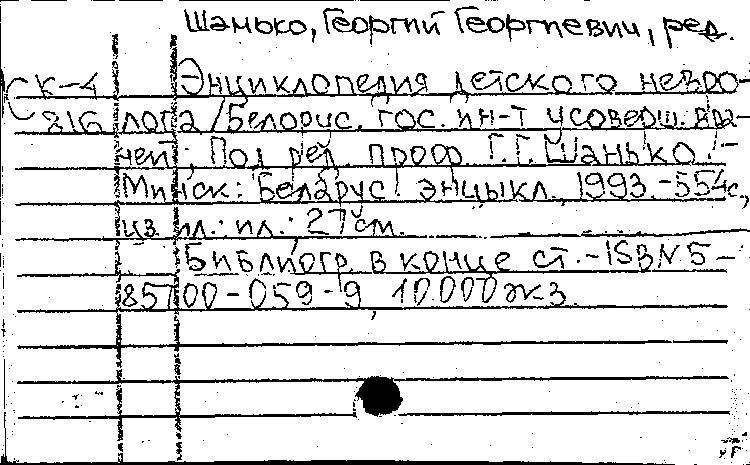 Шанько, Георгий Георгиевич, ред.
СК-4 Энциклопедия детского невро-
816 лога/Белорус. гос. ин-т усоверш. вра-
чей; Под ред. проф. Г.Г. Шанько.-
Минск: Беларус. энцыкл., 1993.-554с,
из ил.: ил.; 27см.
Библиогр. в конце ст.-ISBN 5-
85700-059-9, 10.000 экз.